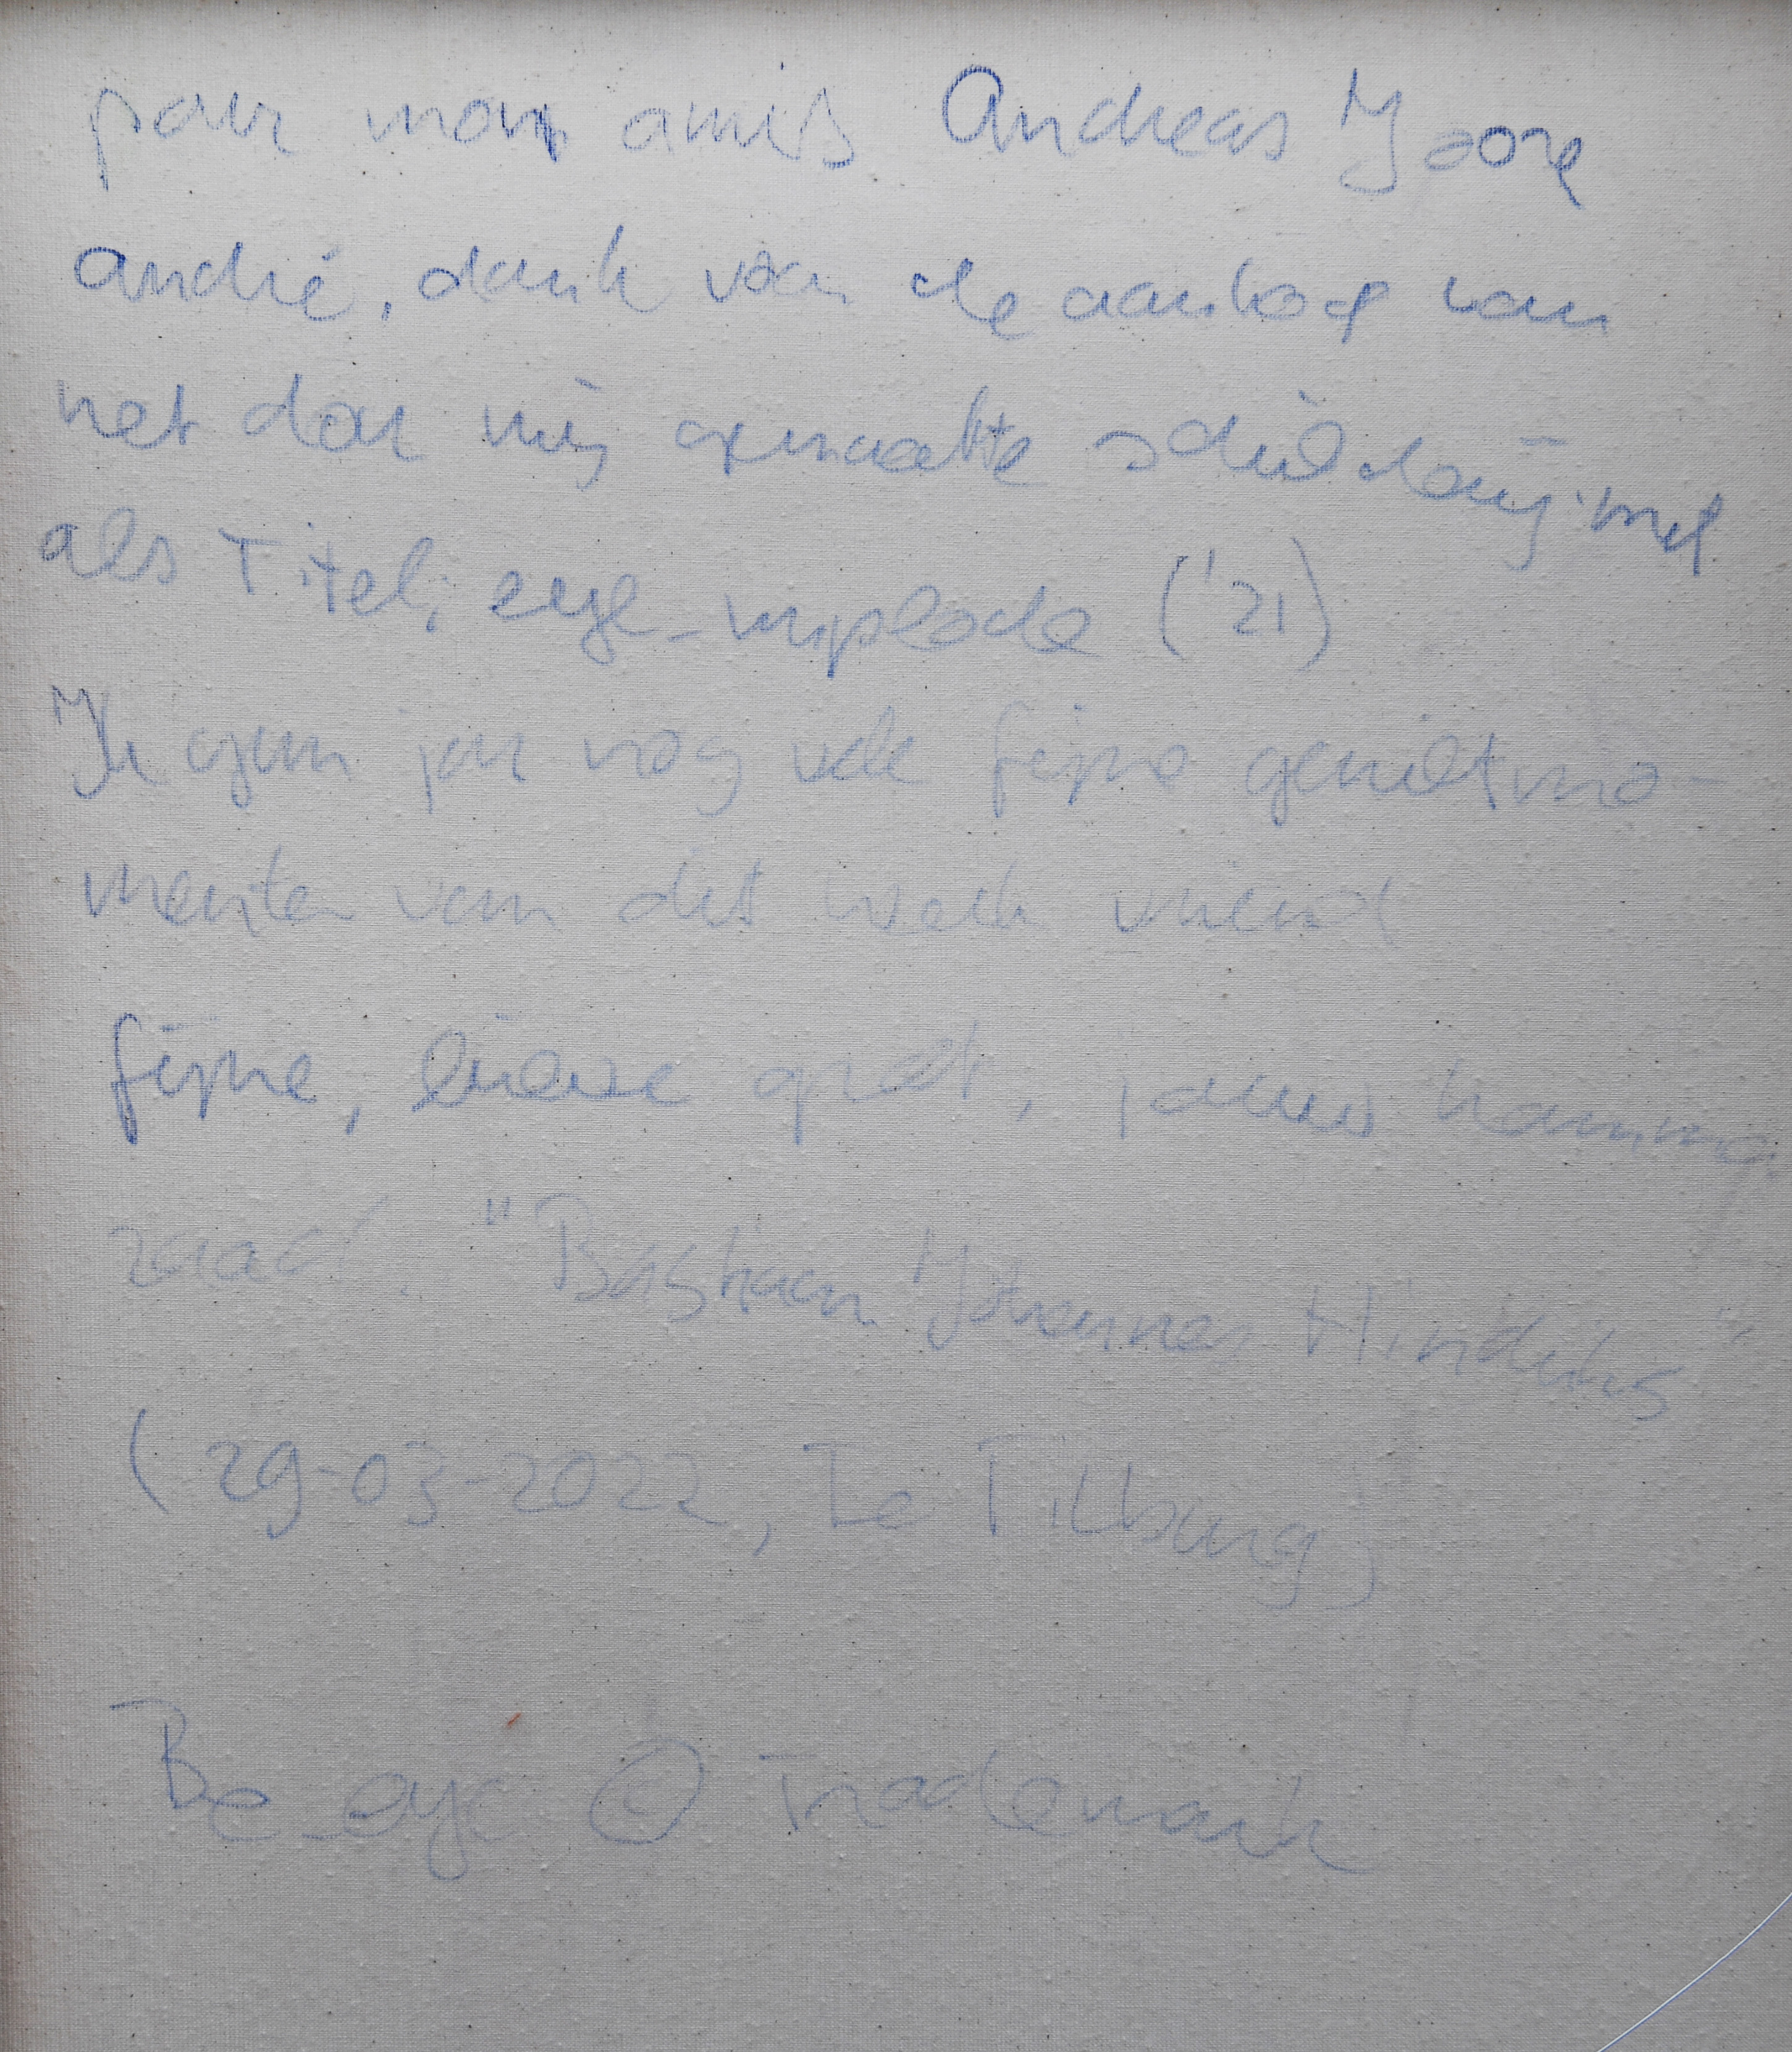 pour mon amis Andreas Joore
andré, dank voor de aankoop van
het door mij gemaakte schilderij met
als Titel; eye-implode ('21)
Ik gun jou nog vele fijne genietmo-
menten van dit werk vriend
fijne, lieve groet,
zaad. "Bastiaan Johannes "
(29-03-2022, Te Tilburg)
Be-eye © Trademark